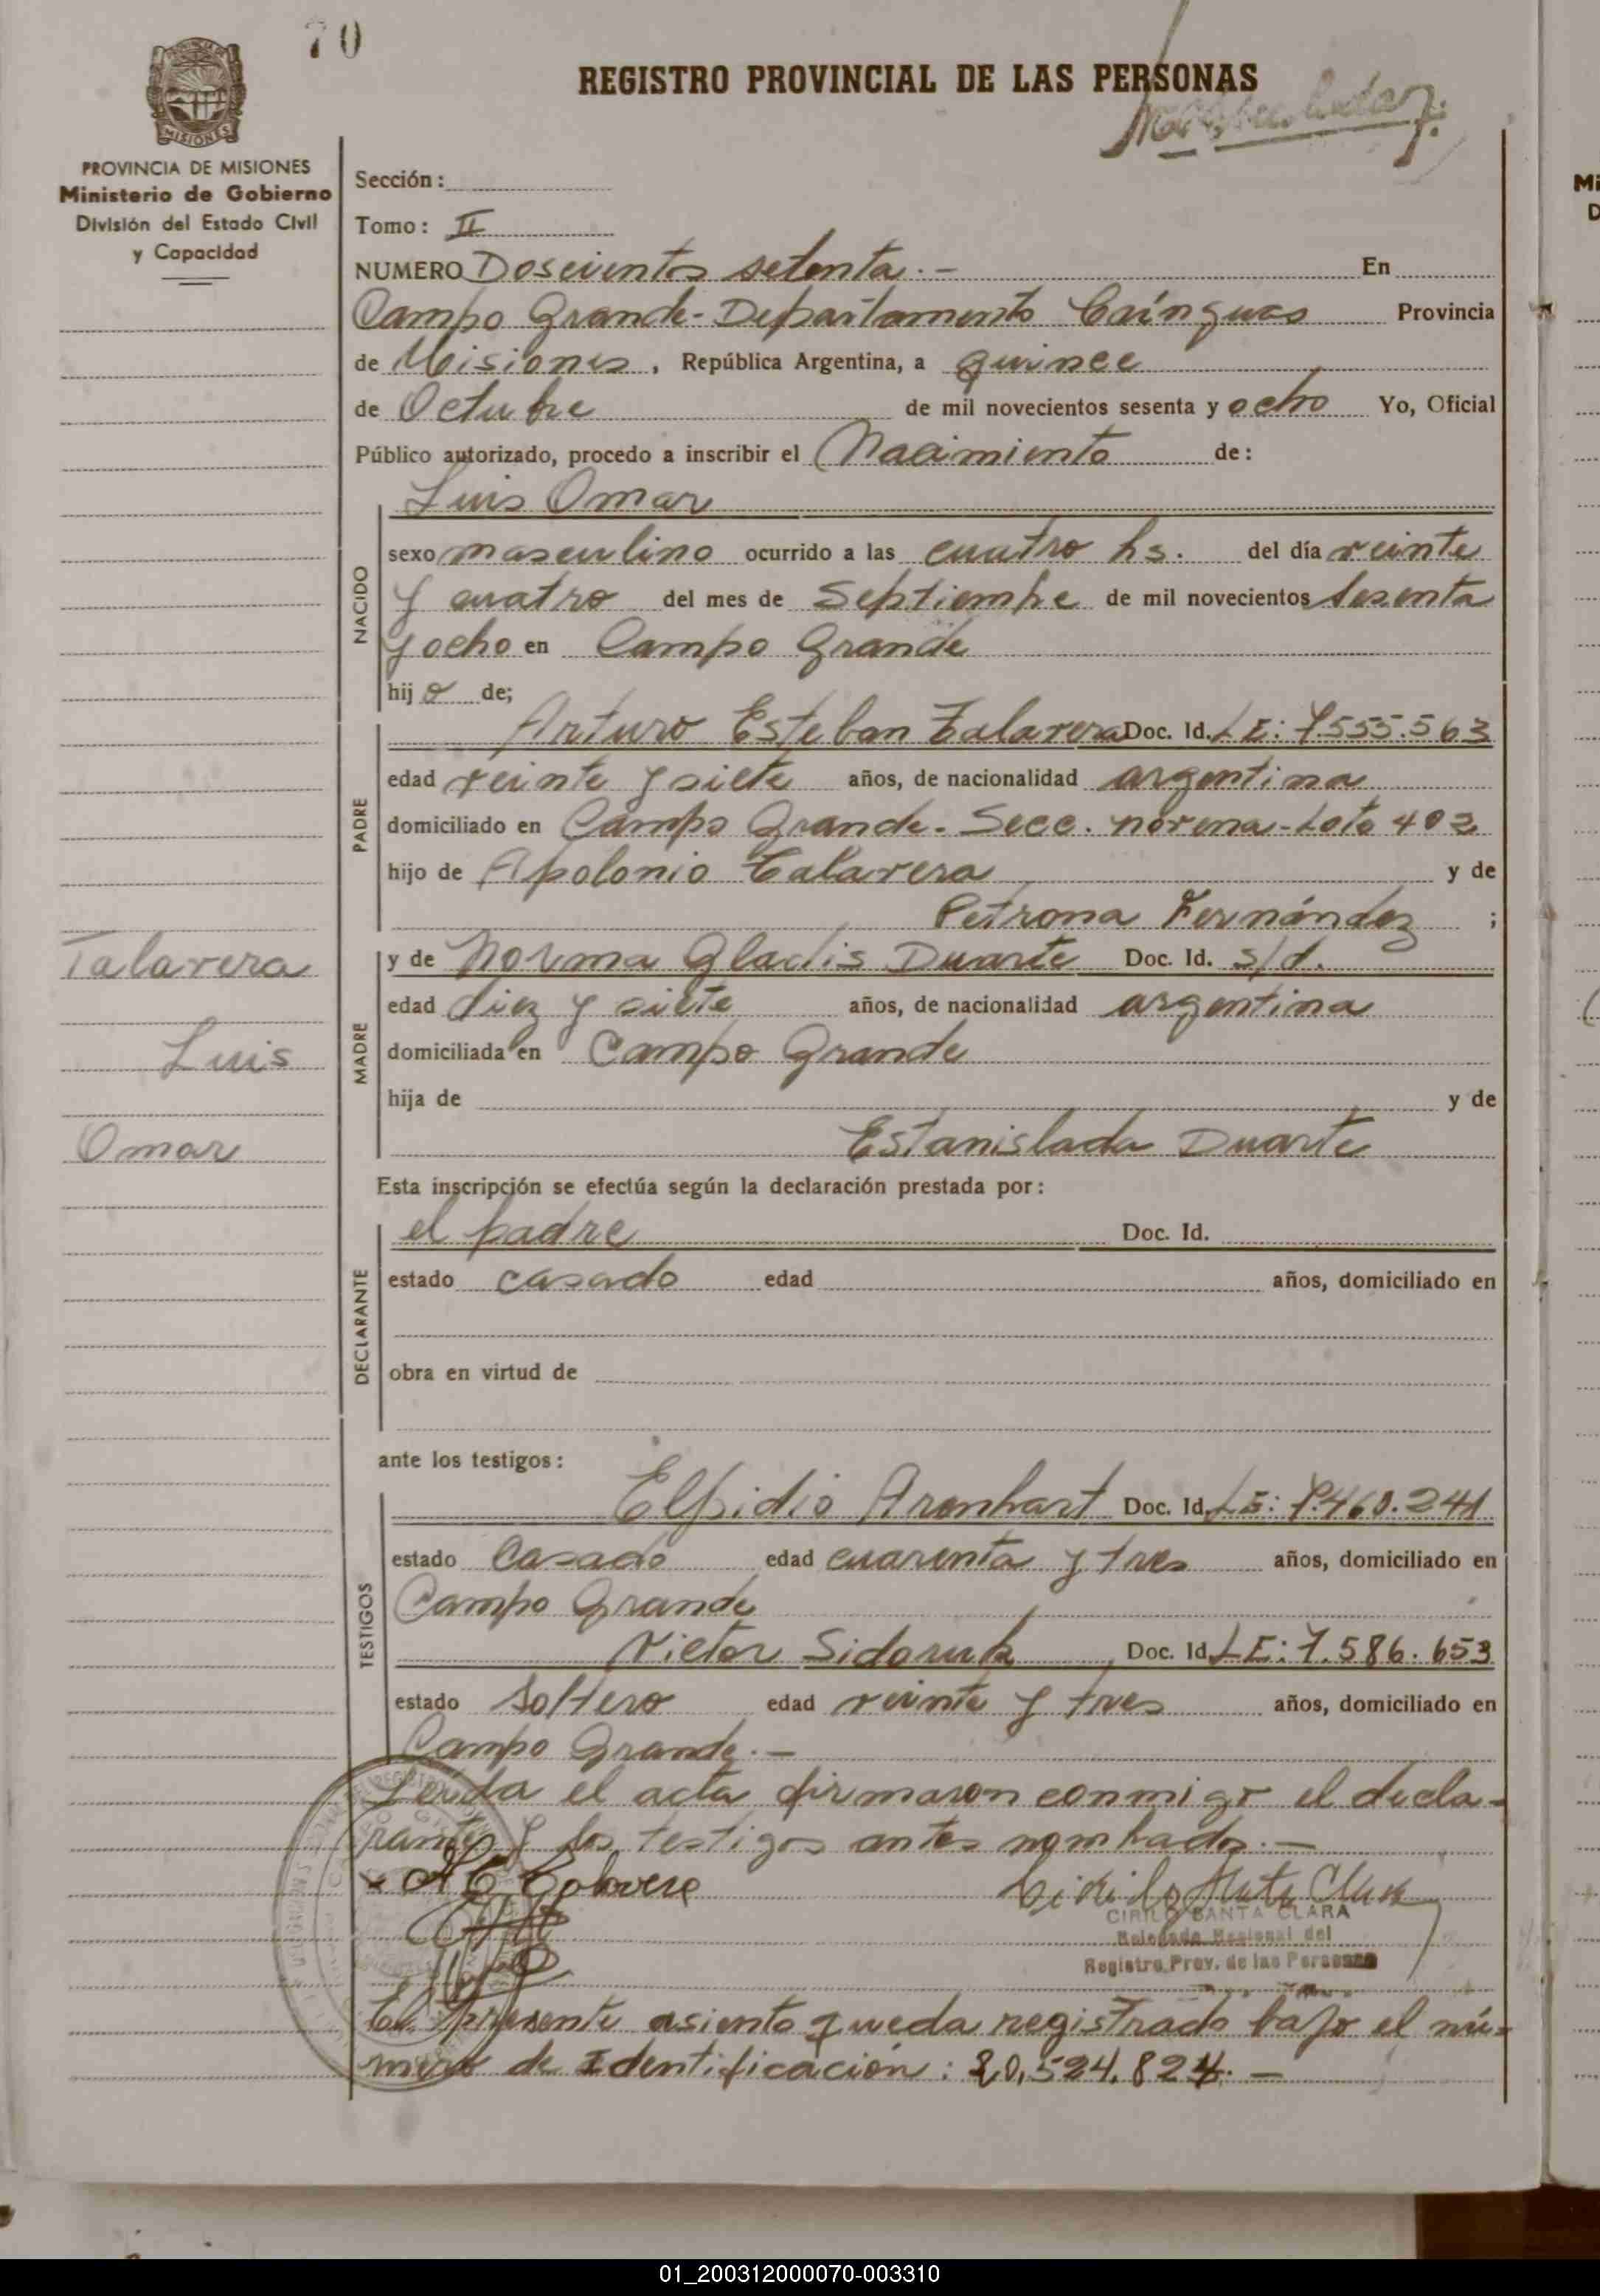 70
REGISTRO PROVINCIAL DE LAS PERSONAS
MISIONES
PROVINCIA DE MISIONES
Ministerio de Gobierno
División del Estado Civil
y Capacidad
Sección:
Tomo: II
NUMERO Doscientos setenta.- En
Campo Grande-Departamento Caínguas Provincia
de Misiones, República Argentina, a quince
de Octubre de mil novecientos sesenta y ocho Yo, Oficial
Público autorizado, procedo a inscribir el Nacimiento de:
Luis Omar
NACIDO
sexo masculino ocurrido a las cuatro hs. del día veinte
y cuatro del mes de Septiembre de mil novecientos sesenta
y ocho en Campo Grande
hijo de;
PADRE
Arturo Esteban Talavera Doc. Id. LE: 7.555.563
edad veinte y siete años, de nacionalidad argentina
domiciliado en Campo Grande. Secc. novena-Lote 402
hijo de Apolonio Talavera y de
Petrona Fernández ;
MADRE
y de Norma Gladis Duarte Doc. Id. s/d.
edad diez y siete años, de nacionalidad argentina
domiciliada en Campo Grande
hija de y de
Estanislada Duarte
Talavera
Luis
Omar
Esta inscripción se efectúa según la declaración prestada por:
DECLARANTE
el padre Doc. Id.
estado casado edad años, domiciliado en
obra en virtud de
ante los testigos:
TESTIGOS
Elpidio Arenhart Doc. Id. LE: 7.460.241
estado Casado edad cuarenta y tres años, domiciliado en
Campo Grande
Victor Sidoruk Doc. Id. LE: 7.586.653
estado soltero edad veinte y tres años, domiciliado en
Campo Grande.-
Leída el acta firmaron conmigo el decla-
rantes y los testigos antes nombrados.-
A E Talavera
Cirilo Santa Clara
CIRILO SANTA CLARA
Delegado Nacional del
Registro Prov. de las Personas
El presente asiento queda registrado bajo el nú-
mero de Identificación: 20,524.824.-
01_200312000070-003310